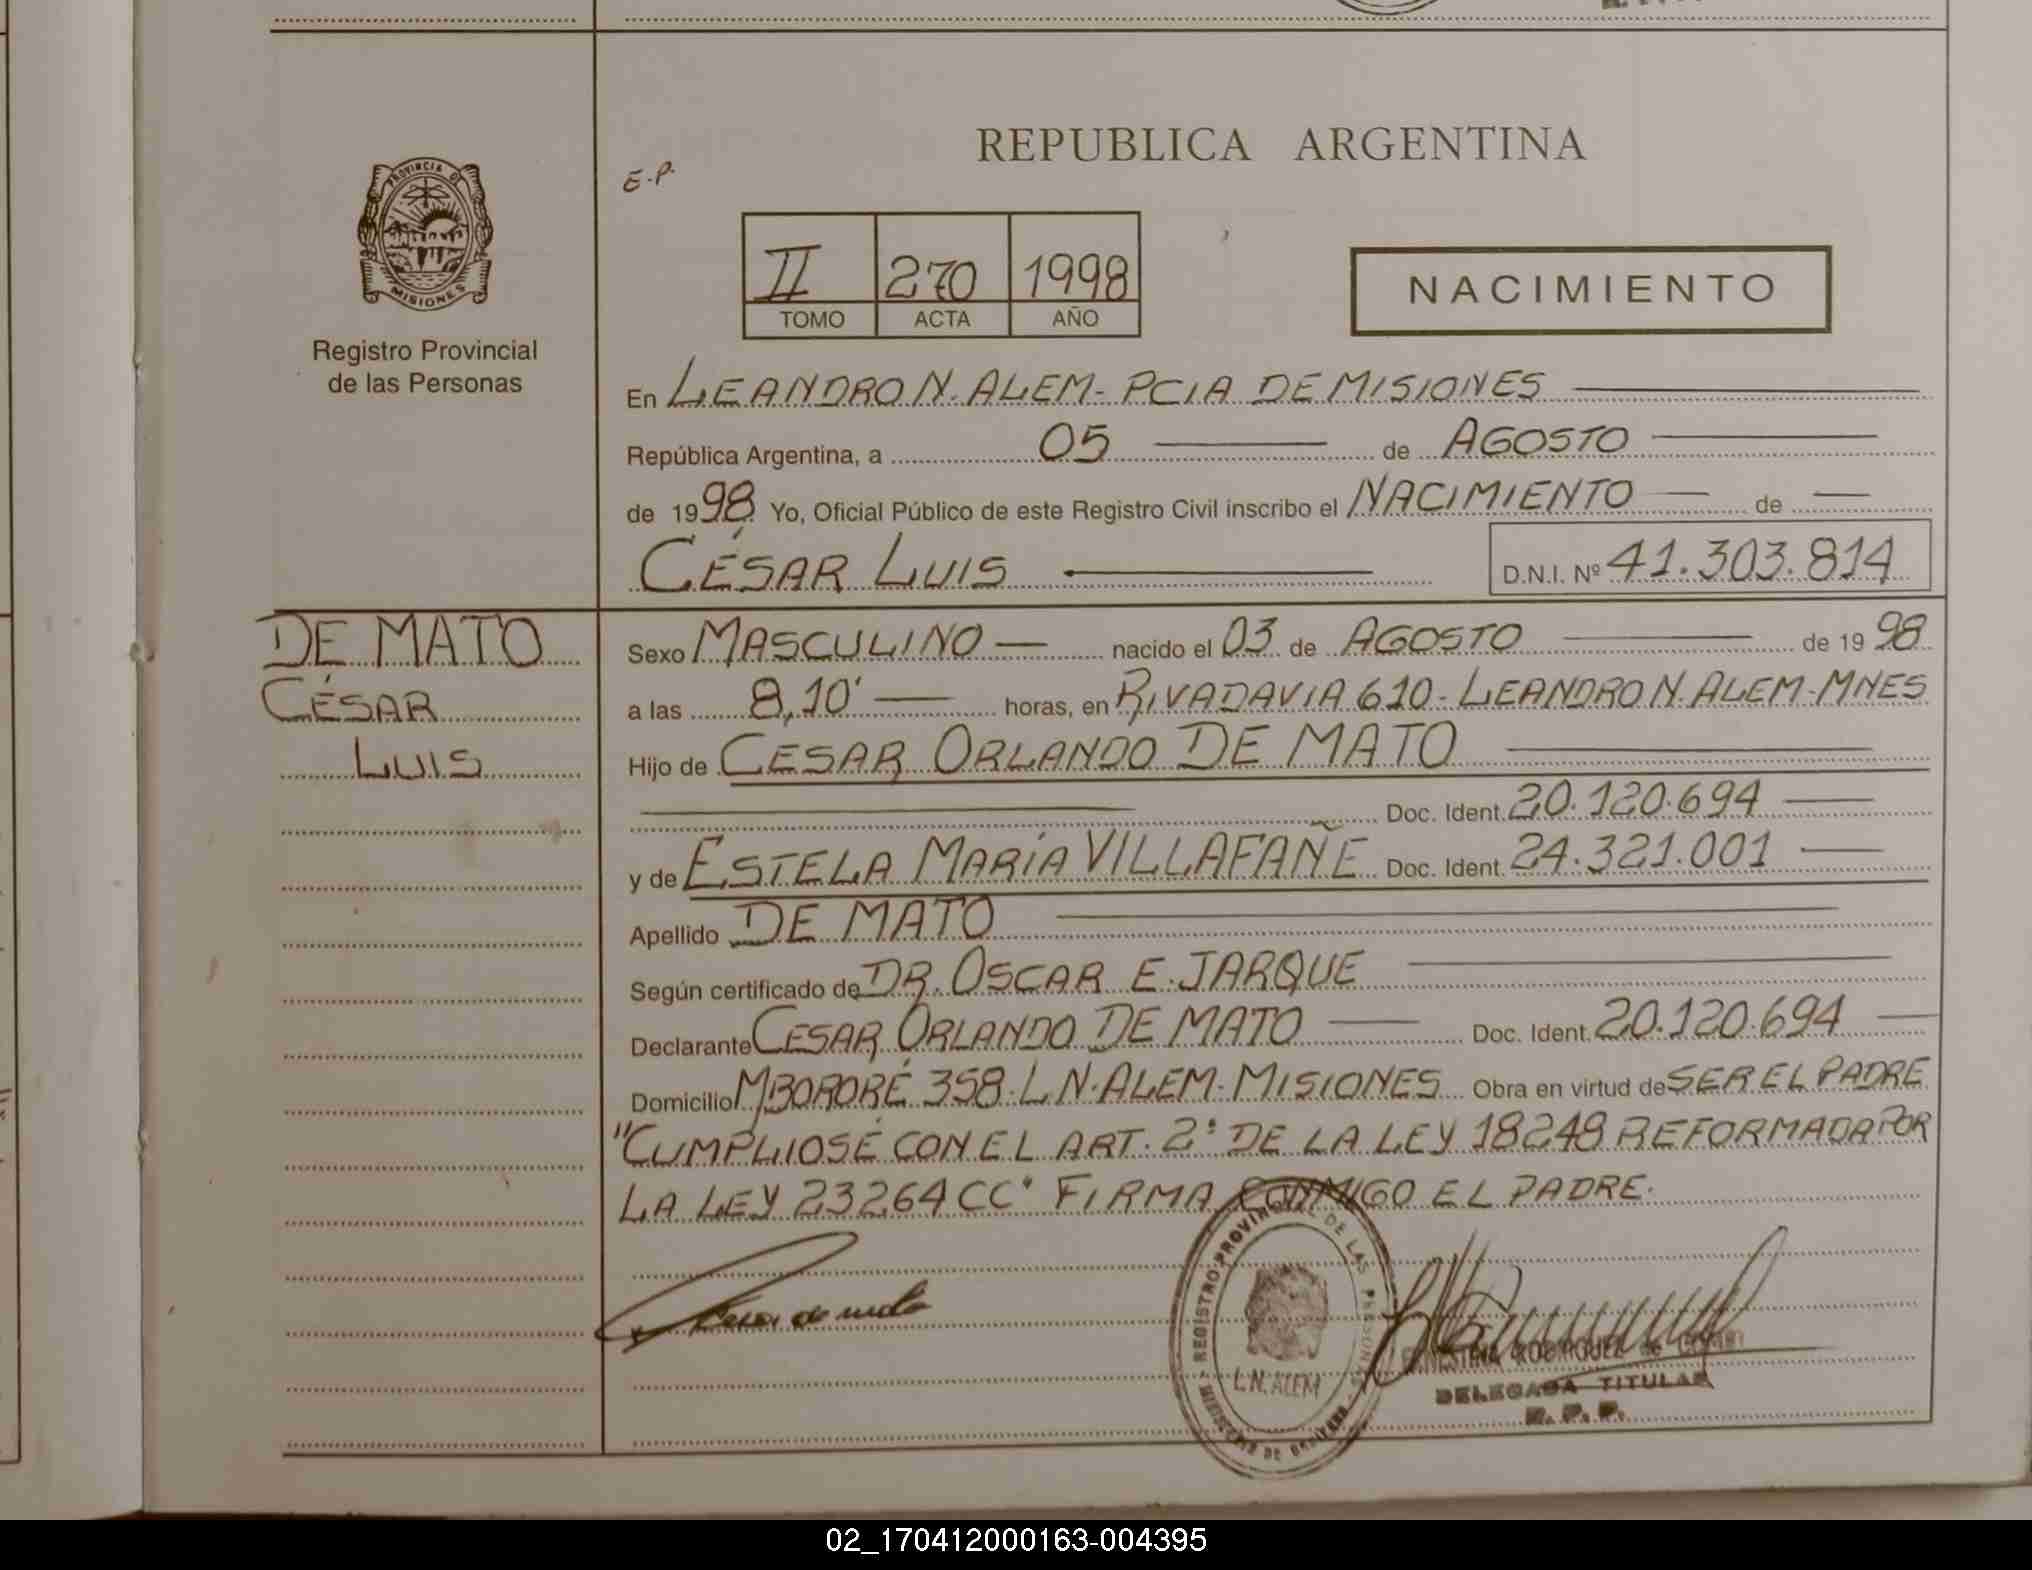 REPUBLICA ARGENTINA
E.P.
PROVINCIA DE
MISIONES
II 270 1998
TOMO ACTA AÑO
NACIMIENTO
Registro Provincial
de las Personas
En LEANDRO N. ALEM - PCIA DE MISIONES
República Argentina, a 05 de AGOSTO
de 1998 Yo, Oficial Público de este Registro Civil inscribo el NACIMIENTO de
CÉSAR LUIS D.N.I. Nº 41.303.814
DE MATO
CÉSAR
LUIS
Sexo MASCULINO nacido el 03 de AGOSTO de 1998
a las 8,10' horas, en RIVADAVIA 610 - LEANDRO N. ALEM - MNES
Hijo de CESAR ORLANDO DE MATO
Doc. Ident. 20.120.694
y de ESTELA MARÍA VILLAFAÑE Doc. Ident. 24.321.001
Apellido DE MATO
Según certificado de DR. OSCAR E. JARQUE
Declarante CESAR ORLANDO DE MATO Doc. Ident. 20.120.694
Domicilio MBORORÉ 358 - L N. ALEM - MISIONES Obra en virtud de SER EL PADRE
"CUMPLIOSÉ CON EL ART. 2º DE LA LEY 18248 REFORMADA POR
LA LEY 23264 CC" FIRMA CONMIGO EL PADRE.
REGISTRO PROVINCIAL DE LAS PERSONAS
MINISTERIO DE GOBIERNO
L.N. ALEM
Cesar de mato
ERNESTINA RODRIGUEZ de
DELEGADA TITULAR
R. P. P.
02_170412000163-004395